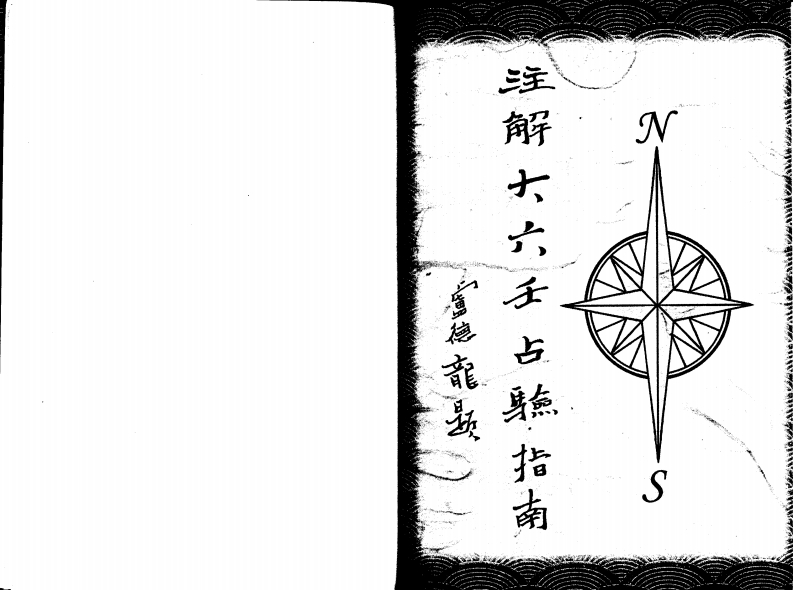 注解大六壬占驗指南
盧德龍題
N
S